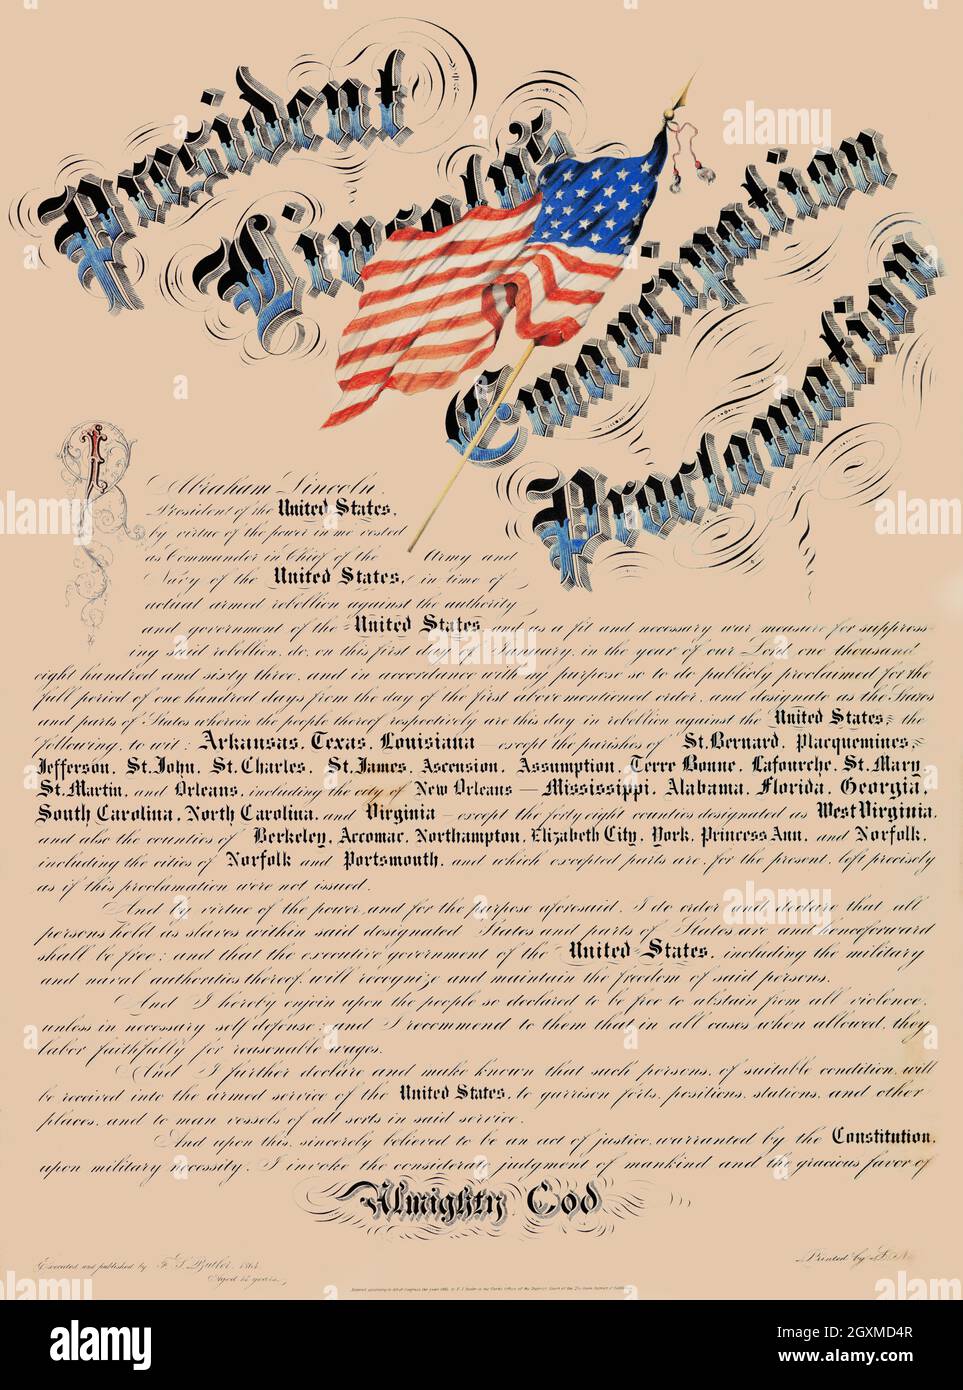 President
Lincoln's
Emancipation
Proclamation
I
Abraham Lincoln,
President of the United States,
by virtue of the power in me vested
as Commander in Chief of the Army and
Navy of the United States, in time of
actual armed rebellion against the authority
and government of the United States, and as a fit and necessary war measure for suppress-
ing said rebellion, do, on this first day of January, in the year of our Lord one thousand
eight hundred and sixty three, and in accordance with my purpose so to do publicly proclaimed for the
full period of one hundred days from the day of the first above mentioned order, and designate as the States
and parts of States wherein the people thereof respectively are this day in rebellion against the United States, the
following, to wit: Arkansas, Texas, Louisiana — except the parishes of St. Bernard, Placquemines,
Jefferson, St. John, St. Charles, St. James, Ascension, Assumption, Terre Bonne, Lafourche, St. Mary,
St. Martin, and Orleans, including the city of New Orleans — Mississippi, Alabama, Florida, Georgia,
South Carolina, North Carolina, and Virginia — except the forty eight counties designated as West Virginia,
and also the counties of Berkeley, Accomac, Northampton, Elizabeth City, York, Princess Ann, and Norfolk,
including the cities of Norfolk and Portsmouth, and which excepted parts are, for the present, left precisely
as if this proclamation were not issued.
And by virtue of the power, and for the purpose aforesaid, I do order and declare that all
persons held as slaves within said designated States and parts of States are and henceforward
shall be free; and that the executive government of the United States, including the military
and naval authorities thereof, will recognize and maintain the freedom of said persons.
And I hereby enjoin upon the people so declared to be free to abstain from all violence,
unless in necessary self defense; and I recommend to them that in all cases when allowed, they
labor faithfully for reasonable wages.
And I further declare and make known that such persons, of suitable condition, will
be received into the armed service of the United States, to garrison forts, positions, stations, and other
places, and to man vessels of all sorts in said service.
And upon this, sincerely believed to be an act of justice, warranted by the Constitution,
upon military necessity, I invoke the considerate judgment of mankind and the gracious favor of
Almighty God
Executed and published by F. S. Butler, 1864
Aged 14 years.
Printed by
alamy
Image ID: 2GXMD4R
www.alamy.com